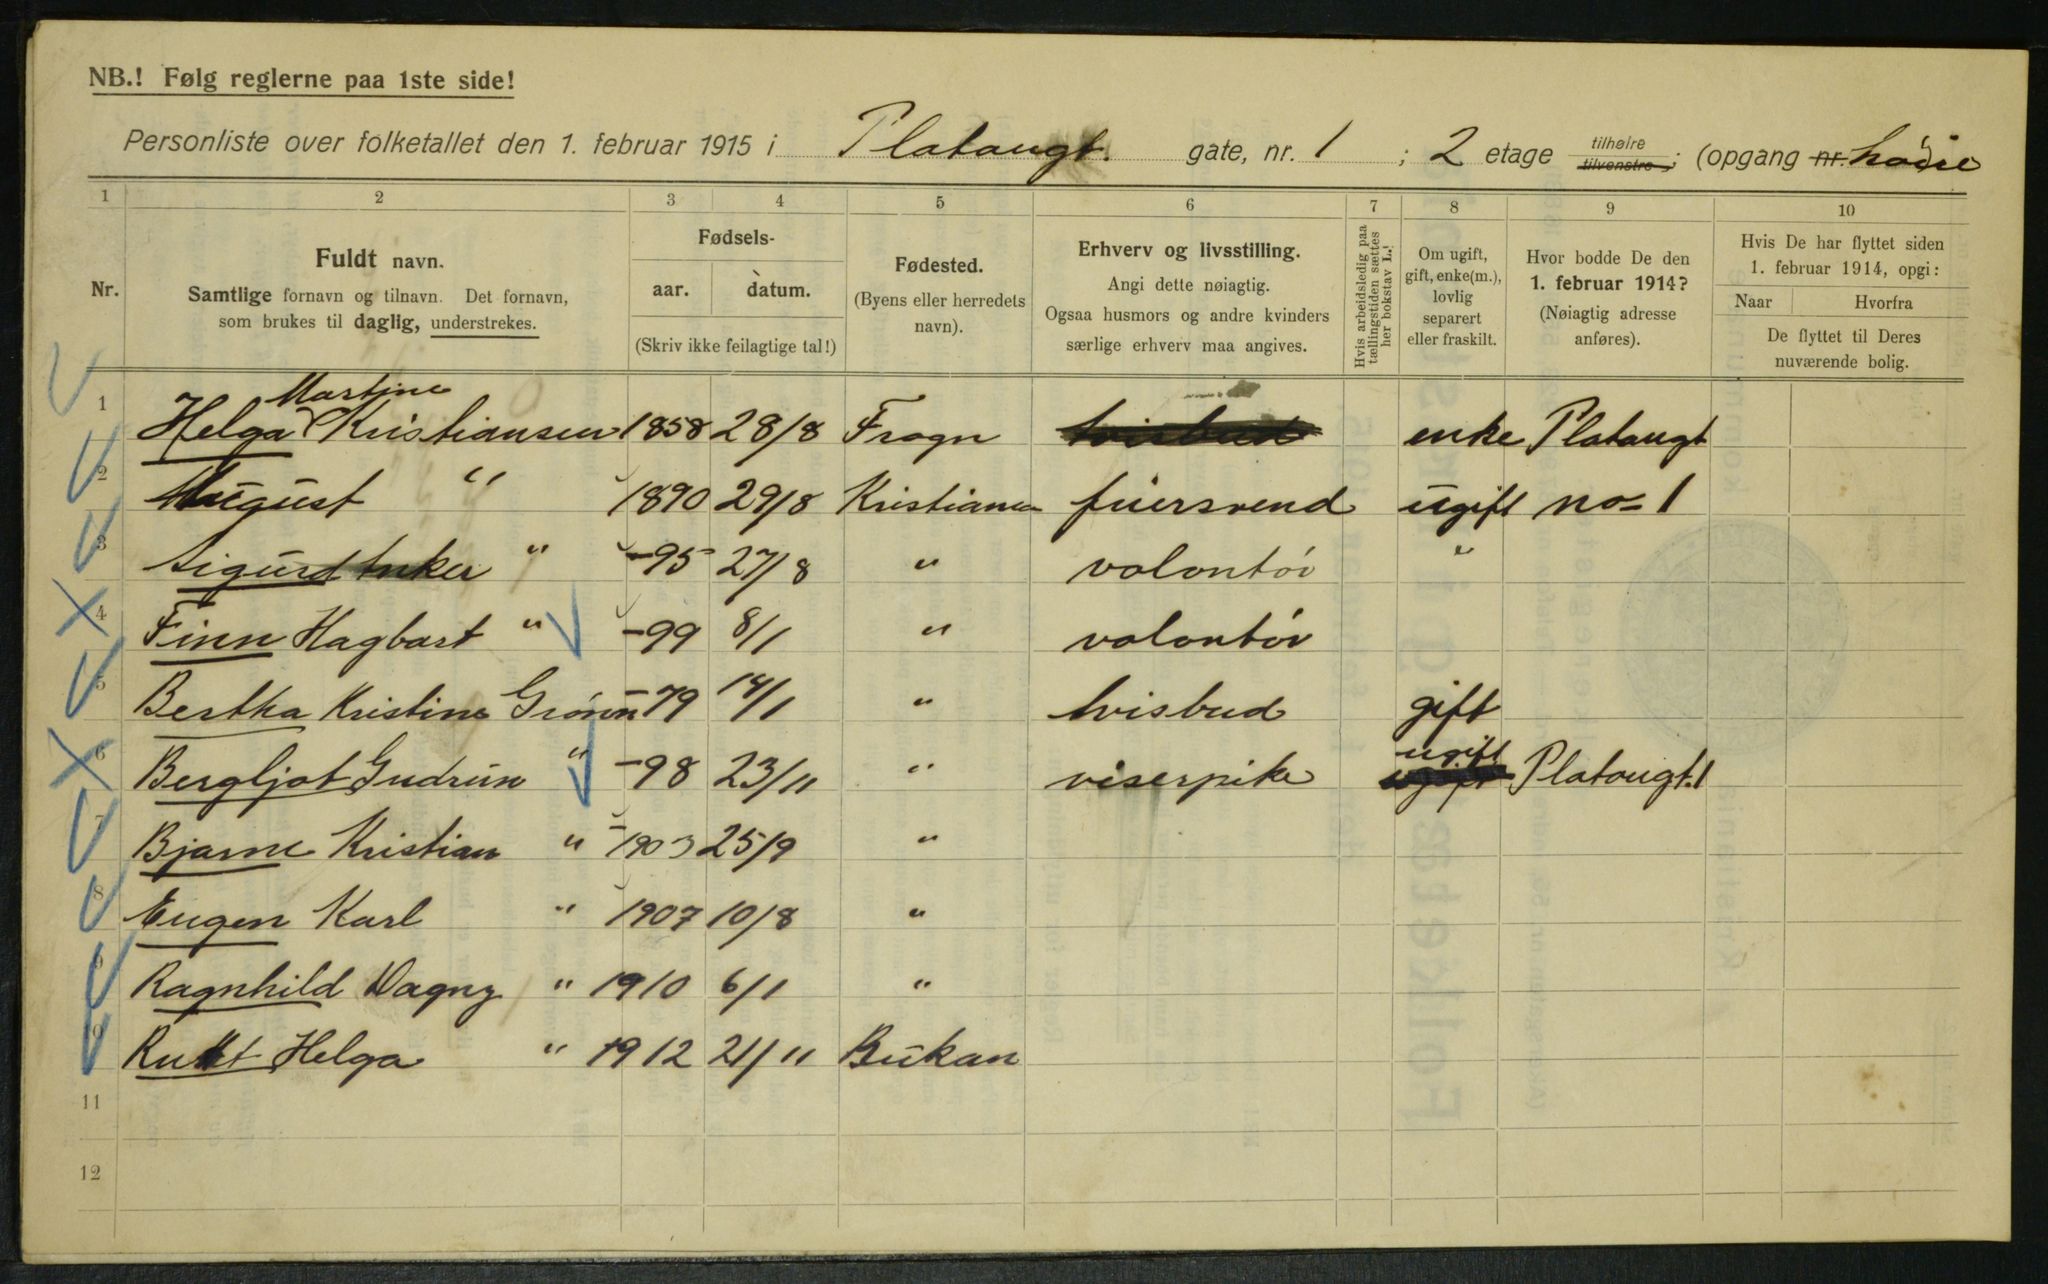 NB.! Følg reglerne paa 1ste side!
Personliste over folketallet den 1. februar 1915 i Platougt. gate, nr. 1 ; 2 etage tilhøire tilvenstre; (opgang nr.
1 2 3 4 5 6 7 8 9 10
Nr.
Fuldt navn.
Samtlige fornavn og tilnavn. Det fornavn,
som brukes til daglig, understrekes.
Fødsels-
aar. datum.
(Skriv ikke feilagtige tal!)
Fødested.
(Byens eller herredets
navn).
Erhverv og livsstilling.
Angi dette nøiagtig.
Ogsaa husmors og andre kvinders
særlige erhverv maa angives.
Hvis arbeidsledig paa
tællingstiden sættes
her bokstav L.!
Om ugift,
gift, enke(m.),
lovlig
separert
eller fraskilt.
Hvor bodde De den
1. februar 1914?
(Nøiagtig adresse
anføres).
Hvis De har flyttet siden
1. februar 1914, opgi:
Naar Hvorfra
De flyttet til Deres
nuværende bolig.
Martine
1 Helga Kristiansen 1858 28/8 Frogn enke Platougt
2 August " 1890 29/8 Kristiania ugift no 1
3 Sigurd " -95 27/8 " volontør "
4 Finn Hagbart " -99 8/1 " volontør
5 Bertha Kristine Grønn -79 14/1 " gift
ugift
6 Bergljot Gudrun " -98 23/11 " viserpike ugift Platougt. 1
7 Bjarne Kristian " 1903 25/9 "
8 Eugen Karl " 1907 10/8 "
9 Ragnhild Dagny " 1910 6/1 "
10 Rutt Helga " 1912 21/11
11
12